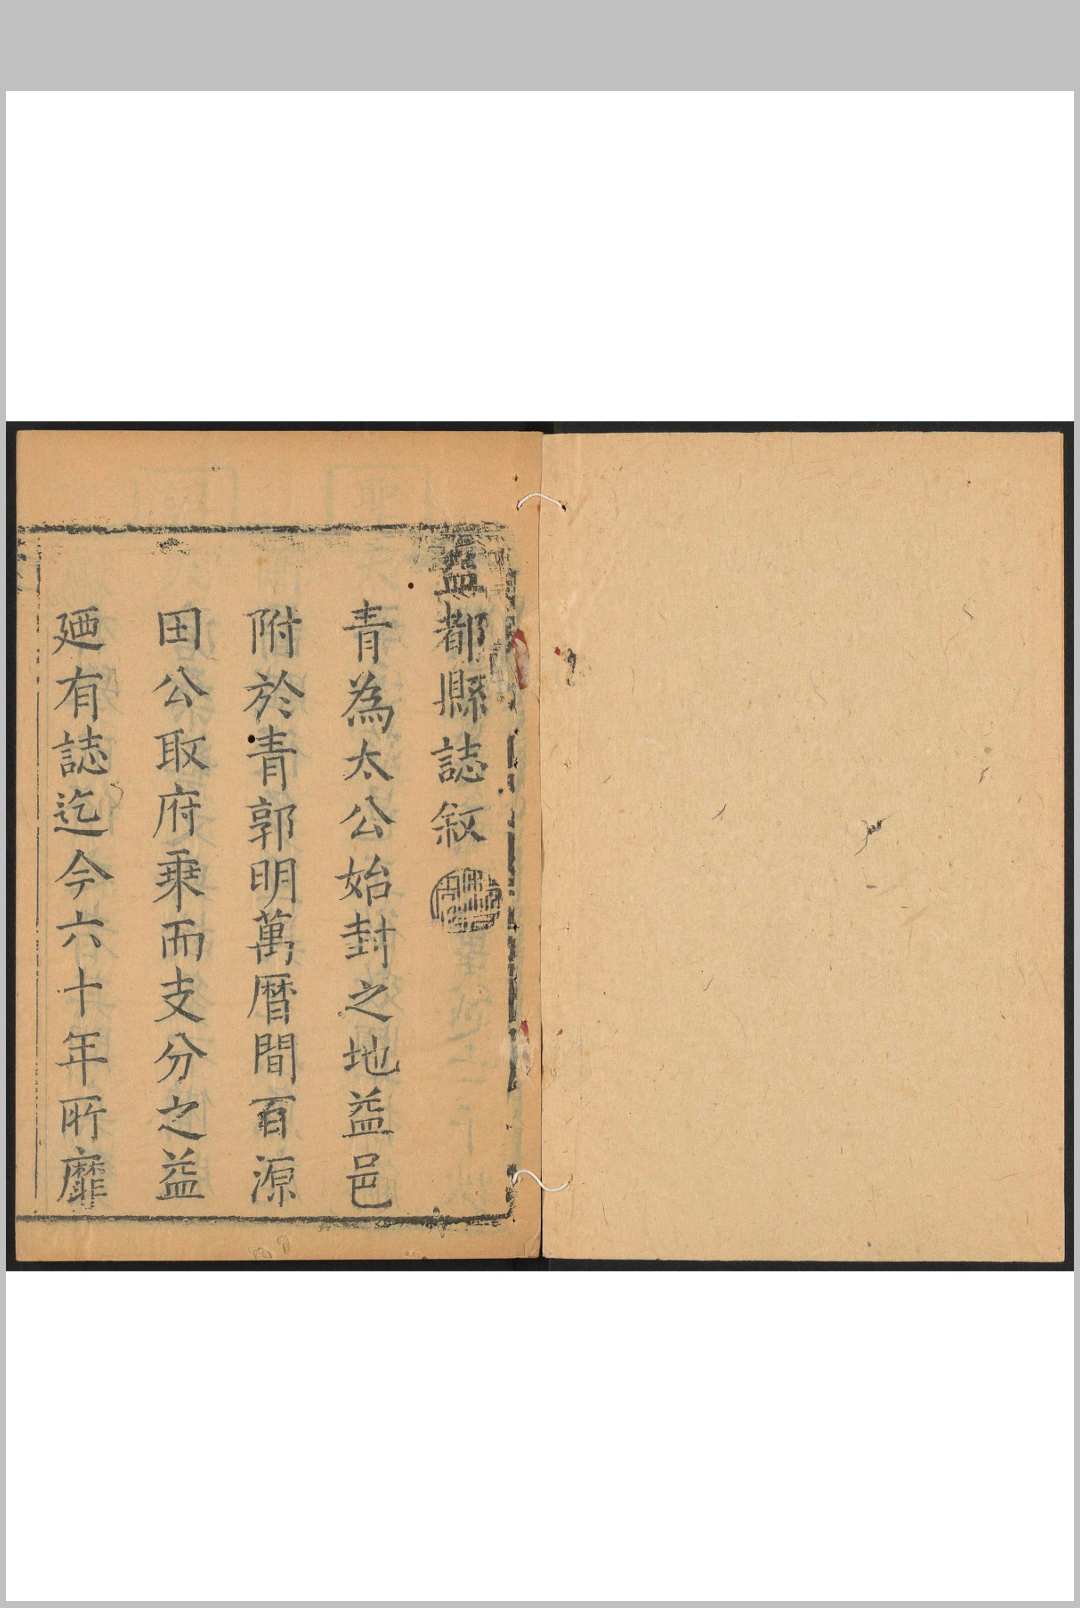 益都縣誌叙
青為太公始封之地益邑
附於青郭明萬曆間百源
田公取府乗而支分之益
廼有誌迄今六十年所靡